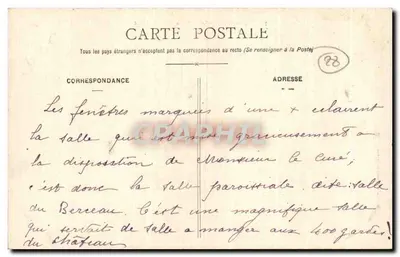 CARTE POSTALE
Tous les pays étrangers n'acceptent pas la correspondance au recto (Se renseigner à la Poste)
28
CORRESPONDANCE
ADRESSE
Les fenêtres marquées d'une + eclairent
la salle qui est mise gracieusement a
la disposition de Monsieur le Curé,
c'est donc la salle paroissiale dite salle
du Berceau. C'est une magnifique salle
qui servait de salle a manger aux 400 gardes
du château!